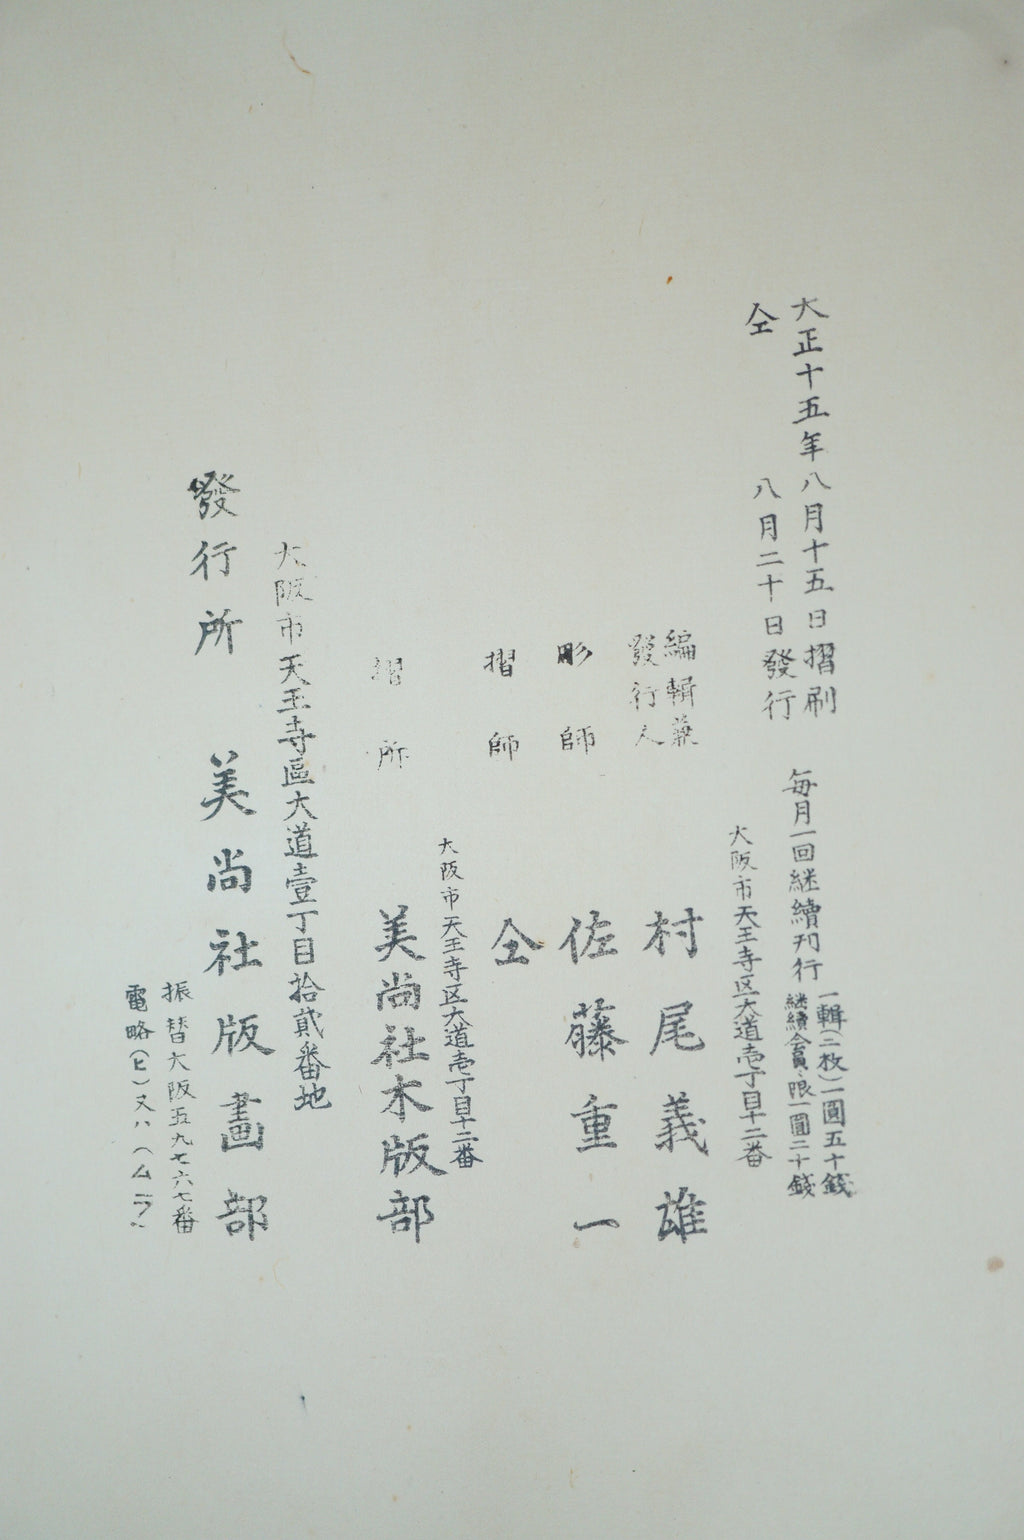 大正十五年八月十五日摺刷
仝 八月二十日發行
毎月一回継續刊行
一輯(二枚)一圓五十錢
継續會員ニ限一圓二十錢
大阪市天王寺区大道壱丁目十二番
編輯兼
發行人 村尾義雄
彫師 佐藤重一
摺師 仝
大阪市天王寺区大道壱丁目十二番
摺所 美尚社木版部
大阪市天王寺區大道壹丁目拾貳番地
發行所 美尚社版畫部
振替大阪五九七六七番
電略(ヒ)又ハ(ムラ)